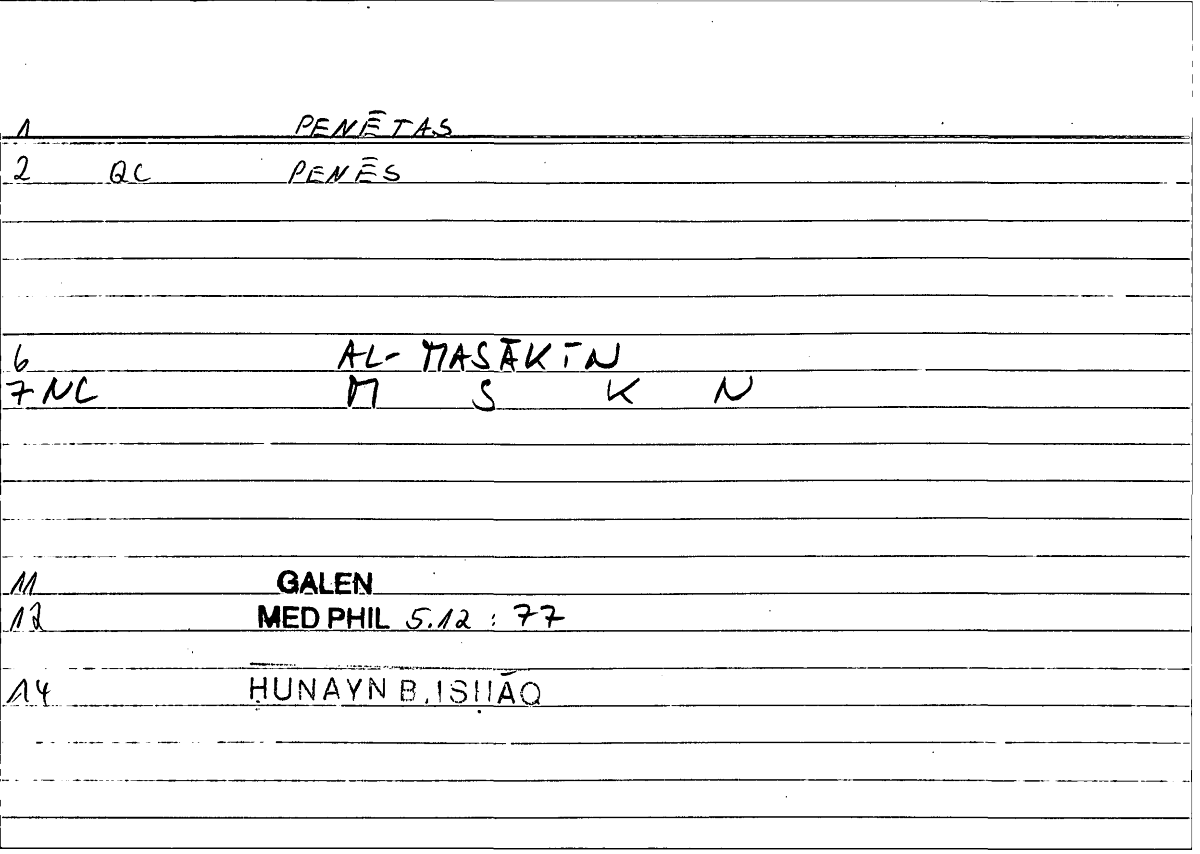 1 PENĒTAS
2 QC PENĒS
6 AL-MASĀKĪN
7 NC M S K N
11 GALEN
12 MED PHIL 5.12 : 77
14 ḤUNAYN B. ISḤĀQ